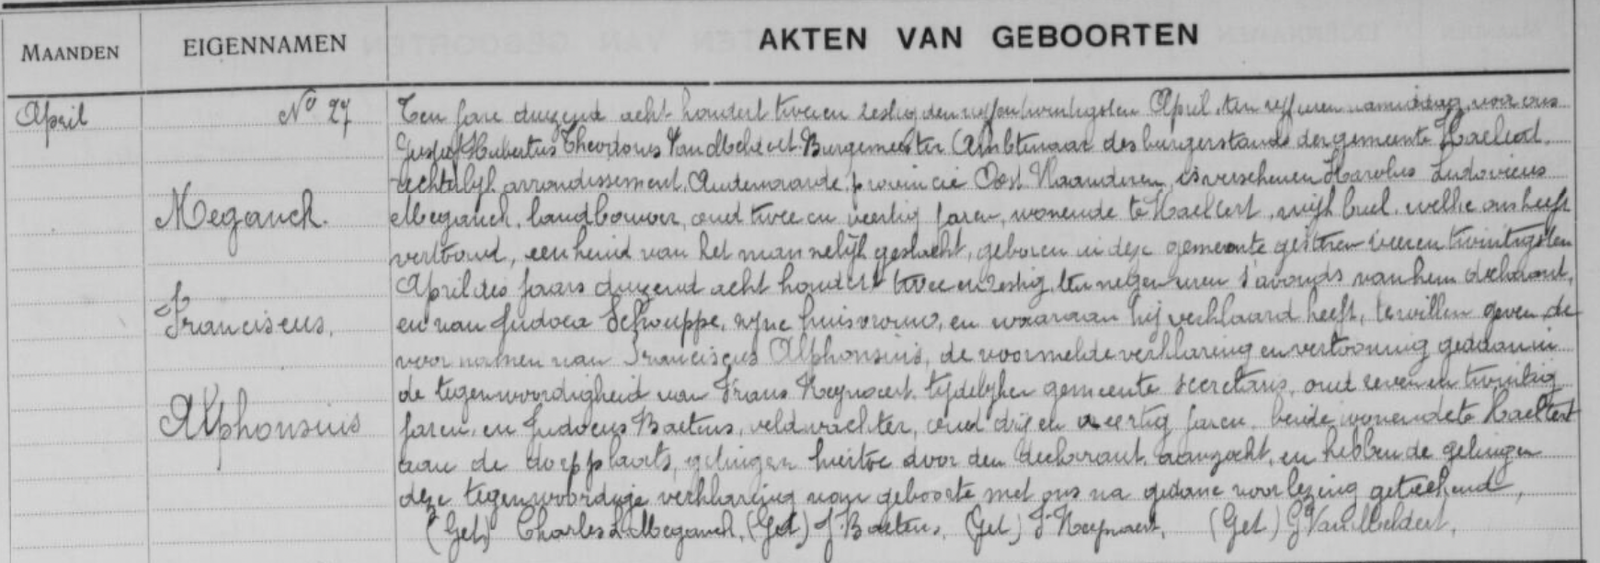 MAANDEN
EIGENNAMEN
AKTEN VAN GEBOORTEN
April
No 27
Meganck.
Franciscus,
Alphonsius
Ten jare duizend acht hondert twee en zestig den vyf en twintigsten April, ten vyf uren namiddag, voor ons
Josef Hubertus Theodorus Van Meldert Burgemeester Ambtenaar des burgerstands der gemeente Haeltert.
rechterlijk arrondissement Audenaarde, provincie Oost Vlaanderen, is verschenen Karolus Ludovicus
Meganck, landbouwer, oud twee en veertig jaren, wonende te Haeltert, wijk bruil, welke ons heeft
vertoond, een kind van het mannelijk geslacht, geboren in deze gemeente gisteren vier en twintigsten
April des jaars duizend acht hondert twee en zestig, ten negen uren s'avonds van hem declarant,
en van Judoca Schouppe, zijne huisvrouw, en waaraan hij verklaard heeft, te willen geven de
voornamen van Franciscus Alphonsius, de voormelde verklaring en vertooning gedaan in
de tegenwoordigheid van Frans Reynaert, tijdelijken gemeente secretaris, oud zeven en twintig
jaren, en Judocus Baetens, veldwachter, oud drij en veertig jaren, beide wonende te Haeltert
aan de dorpplaats, getuigen hiertoe door den declarant aanzocht, en hebben de getuigen
deze tegenwoordige verklaring van geboorte met ons na gedane voorlezing geteekend,
(Get) Charles L Meganck, (Get) J Baetens, (Get) F Reynaert, (Get) G Van Meldert,